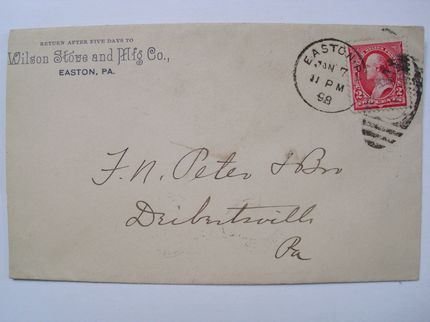 RETURN AFTER FIVE DAYS TO
Wilson Stove and Mfg Co.,
EASTON, PA.
EASTON
JAN 7
11 PM
98
2 2
F. N. Peter & Bro
Deibertsville
Pa